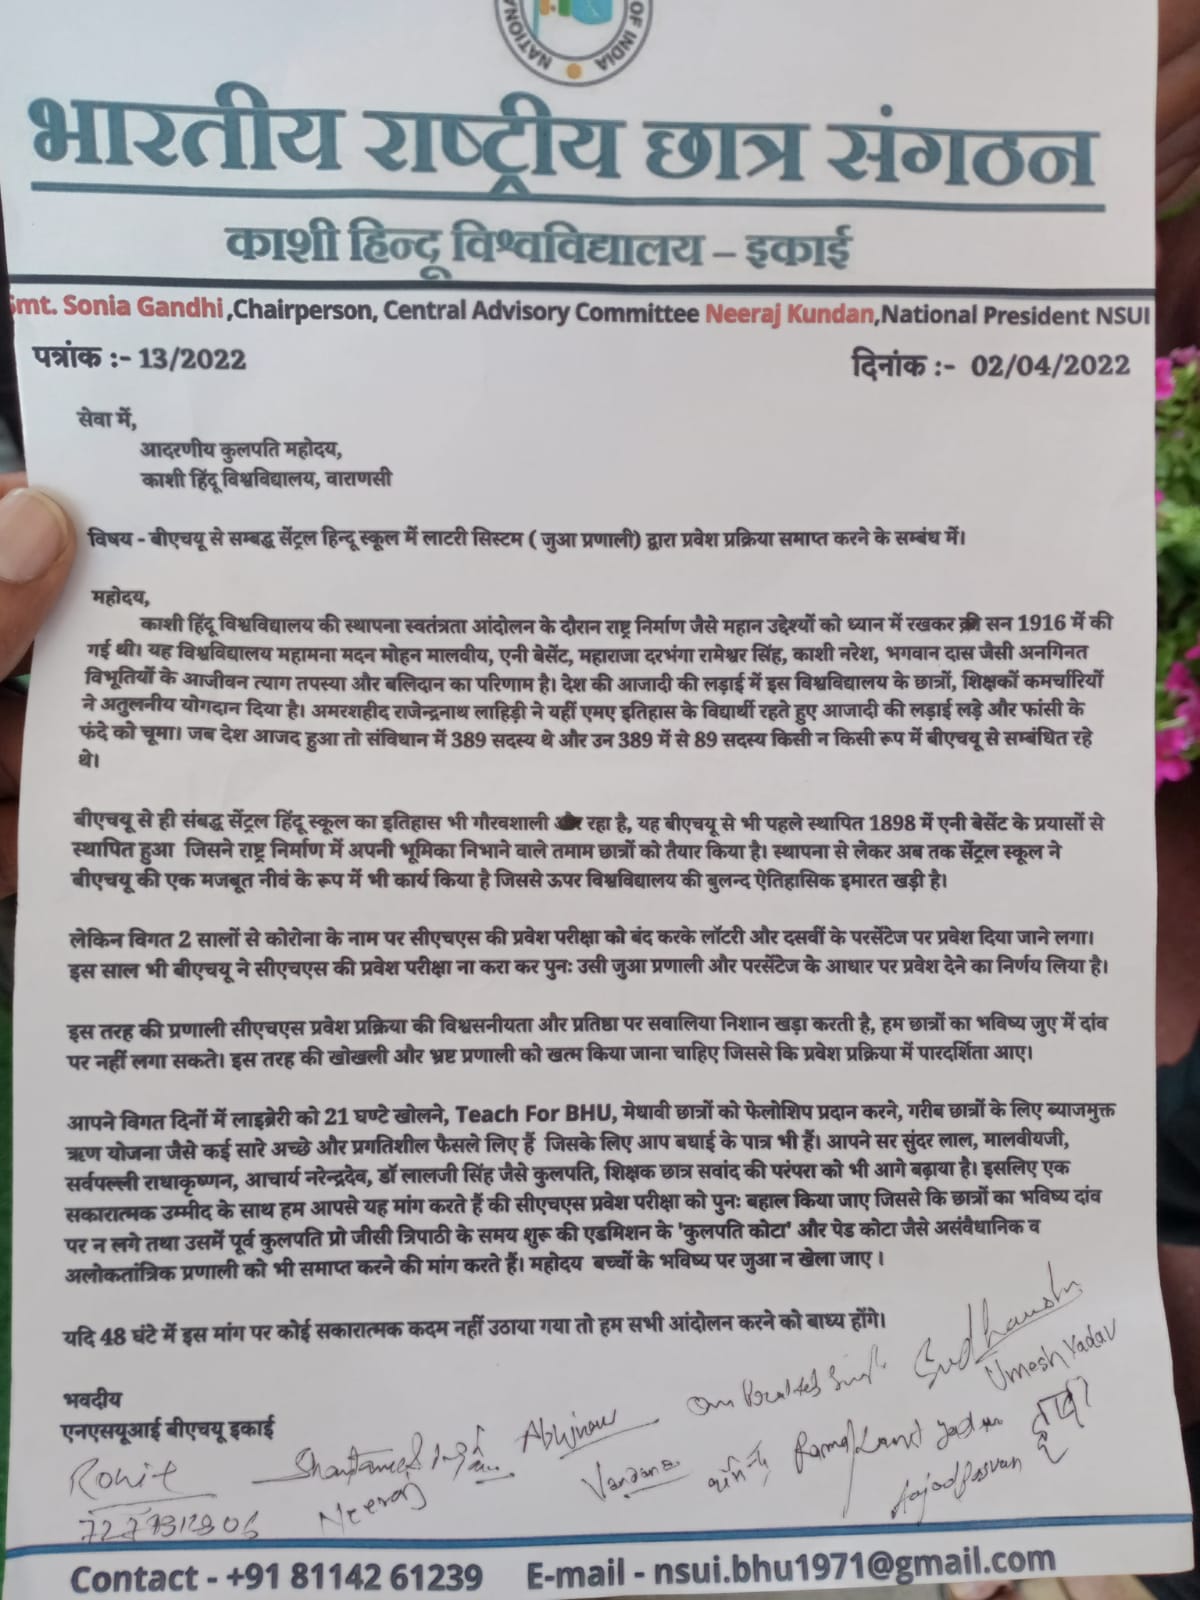 NATIONAL
OF INDIA
भारतीय राष्ट्रीय छात्र संगठन
काशी हिन्दू विश्वविद्यालय – इकाई
Smt. Sonia Gandhi ,Chairperson, Central Advisory Committee Neeraj Kundan,National President NSUI
पत्रांक :- 13/2022
दिनांक :- 02/04/2022
सेवा में,
आदरणीय कुलपति महोदय,
काशी हिंदू विश्वविद्यालय, वाराणसी
विषय - बीएचयू से सम्बद्ध सेंट्रल हिन्दू स्कूल में लाटरी सिस्टम ( जुआ प्रणाली) द्वारा प्रवेश प्रक्रिया समाप्त करने के सम्बंध में।
महोदय,
काशी हिंदू विश्वविद्यालय की स्थापना स्वतंत्रता आंदोलन के दौरान राष्ट्र निर्माण जैसे महान उद्देश्यों को ध्यान में रखकर सन 1916 में की
गई थी। यह विश्वविद्यालय महामना मदन मोहन मालवीय, एनी बेसेंट, महाराजा दरभंगा रामेश्वर सिंह, काशी नरेश, भगवान दास जैसी अनगिनत
विभूतियों के आजीवन त्याग तपस्या और बलिदान का परिणाम है। देश की आजादी की लड़ाई में इस विश्वविद्यालय के छात्रों, शिक्षकों कमर्चारियों
ने अतुलनीय योगदान दिया है। अमरशहीद राजेन्द्रनाथ लाहिड़ी ने यहीं एमए इतिहास के विद्यार्थी रहते हुए आजादी की लड़ाई लड़े और फांसी के
फंदे को चूमा। जब देश आजद हुआ तो संविधान में 389 सदस्य थे और उन 389 में से 89 सदस्य किसी न किसी रूप में बीएचयू से सम्बंधित रहे
थे।
बीएचयू से ही संबद्ध सेंट्रल हिंदू स्कूल का इतिहास भी गौरवशाली रहा है, यह बीएचयू से भी पहले स्थापित 1898 में एनी बेसेंट के प्रयासों से
स्थापित हुआ जिसने राष्ट्र निर्माण में अपनी भूमिका निभाने वाले तमाम छात्रों को तैयार किया है। स्थापना से लेकर अब तक सेंट्रल स्कूल ने
बीएचयू की एक मजबूत नीवं के रूप में भी कार्य किया है जिससे ऊपर विश्वविद्यालय की बुलन्द ऐतिहासिक इमारत खड़ी है।
लेकिन विगत 2 सालों से कोरोना के नाम पर सीएचएस की प्रवेश परीक्षा को बंद करके लॉटरी और दसवीं के परसेंटेज पर प्रवेश दिया जाने लगा।
इस साल भी बीएचयू ने सीएचएस की प्रवेश परीक्षा ना करा कर पुनः उसी जुआ प्रणाली और परसेंटेज के आधार पर प्रवेश देने का निर्णय लिया है।
इस तरह की प्रणाली सीएचएस प्रवेश प्रक्रिया की विश्वसनीयता और प्रतिष्ठा पर सवालिया निशान खड़ा करती है, हम छात्रों का भविष्य जुए में दांव
पर नहीं लगा सकते। इस तरह की खोखली और भ्रष्ट प्रणाली को खत्म किया जाना चाहिए जिससे कि प्रवेश प्रक्रिया में पारदर्शिता आए।
आपने विगत दिनों में लाइब्रेरी को 21 घण्टे खोलने, Teach For BHU, मेधावी छात्रों को फेलोशिप प्रदान करने, गरीब छात्रों के लिए ब्याजमुक्त
ऋण योजना जैसे कई सारे अच्छे और प्रगतिशील फैसले लिए हैं जिसके लिए आप बधाई के पात्र भी हैं। आपने सर सुंदर लाल, मालवीयजी,
सर्वपल्ली राधाकृष्णन, आचार्य नरेन्द्रदेव, डॉ लालजी सिंह जैसे कुलपति, शिक्षक छात्र सवांद की परंपरा को भी आगे बढ़ाया है। इसलिए एक
सकारात्मक उम्मीद के साथ हम आपसे यह मांग करते हैं की सीएचएस प्रवेश परीक्षा को पुनः बहाल किया जाए जिससे कि छात्रों का भविष्य दांव
पर न लगे तथा उसमें पूर्व कुलपति प्रो जीसी त्रिपाठी के समय शुरू की एडमिशन के 'कुलपति कोटा' और पेड कोटा जैसे असंवैधानिक व
अलोकतांत्रिक प्रणाली को भी समाप्त करने की मांग करते हैं। महोदय बच्चों के भविष्य पर जुआ न खेला जाए ।
यदि 48 घंटे में इस मांग पर कोई सकारात्मक कदम नहीं उठाया गया तो हम सभी आंदोलन करने को बाध्य होंगे।
भवदीय
एनएसयूआई बीएचयू इकाई
Sudhanshu
Umesh Yadav
Abhinav
Rohit
Neeraj
Vandana
Contact - +91 81142 61239 E-mail - nsui.bhu1971@gmail.com